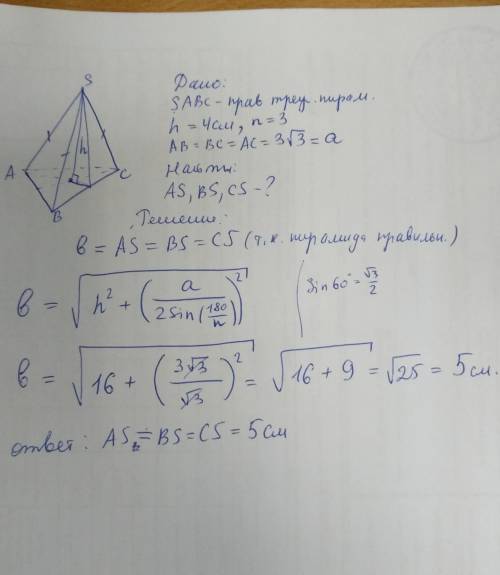 S
A
B
C
h
Дано:
SABC - прав треуг. пирам.
h = 4см, n = 3
AB = BC = AC = 3√3 = a
Найти:
AS, BS, CS - ?
Решение:
b = AS = BS = CS (т.к. пирамида правильн.)
b = √(h² + (a / (2 Sin(180/n)))²)
Sin 60° = √3/2
b = √(16 + (3√3 / √3)²) = √(16 + 9) = √25 = 5 см.
ответ: AS = BS = CS = 5 см